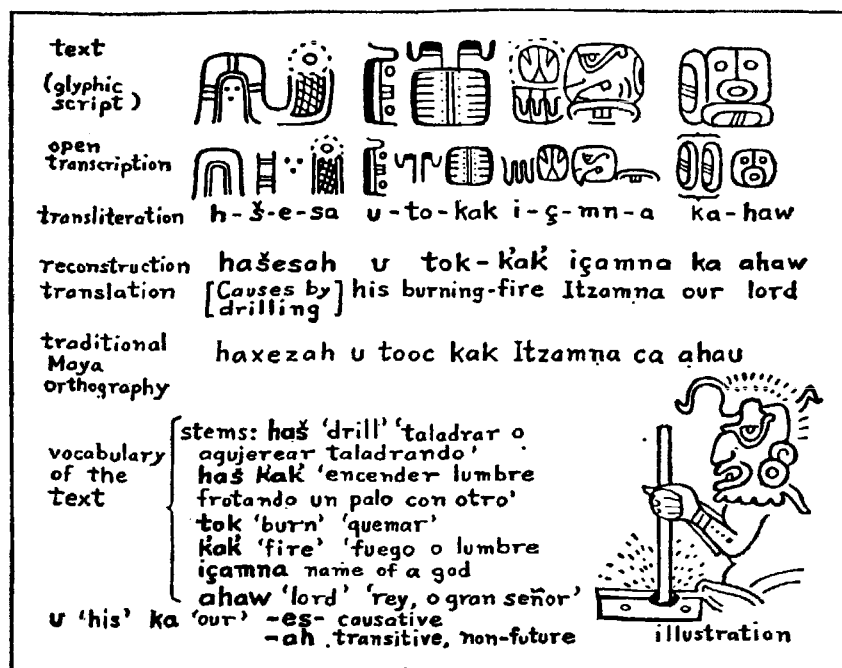 text
(glyphic script)
open transcription
transliteration h-š-e-sa u-to-kak i-ç-mn-a ka-haw
reconstruction hašesah u tok-k̓ak̓ içamna ka ahaw
translation [Causes by drilling] his burning-fire Itzamna our lord
traditional Maya orthography haxezah u tooc kak Itzamna ca ahau
vocabulary of the text
stems: haš ‘drill’ ‘taladrar o
agujerear taladrando’
haš k̓ak̓ ‘encender lumbre
frotando un palo con otro’
tok ‘burn’ ‘quemar’
k̓ak̓ ‘fire’ ‘fuego o lumbre
içamna name of a god
ahaw ‘lord’ ‘rey, o gran señor’
u ‘his’ ka ‘our’ -es- causative
-ah transitive, non-future
illustration